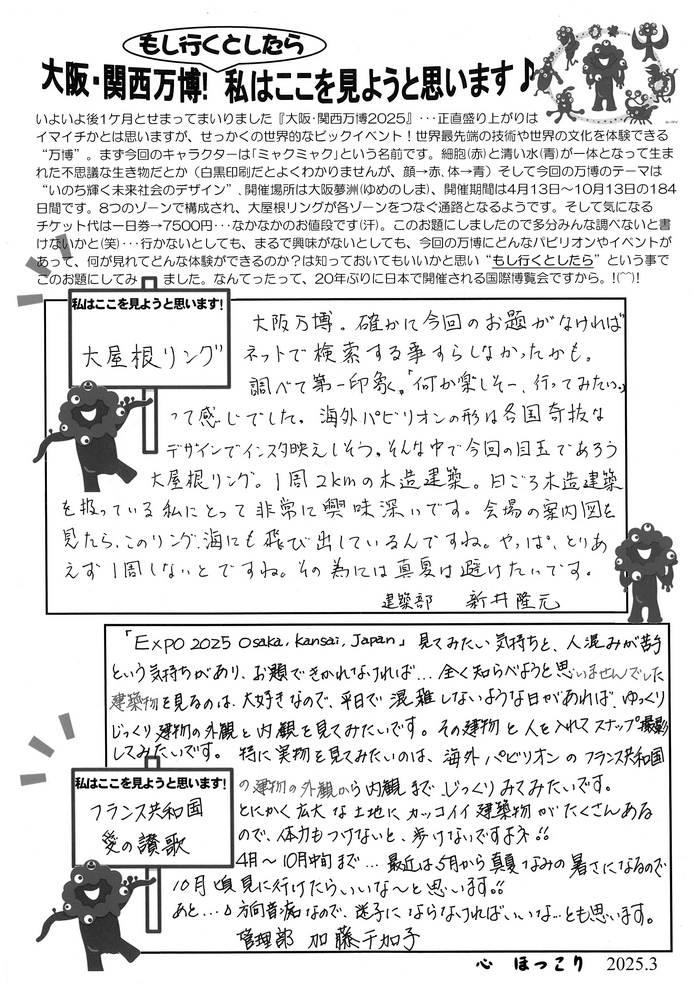 もし行くとしたら
大阪・関西万博! 私はここを見ようと思います♪
いよいよ後1ケ月とせまってまいりました『大阪・関西万博2025』・・・正直盛り上がりは
イマイチかとは思いますが、せっかくの世界的なビックイベント！世界最先端の技術や世界の文化を体験できる
“万博”。まず今回のキャラクターは「ミャクミャク」という名前です。細胞(赤)と清い水(青)が一体となって生ま
れた不思議な生き物だとか（白黒印刷だとよくわかりませんが、顔→赤、体→青）そして今回の万博のテーマは
“いのち輝く未来社会のデザイン”、開催場所は大阪夢洲(ゆめのしま)、開催期間は4月13日～10月13日の184
日間です。8つのゾーンで構成され、大屋根リングが各ゾーンをつなぐ通路となるようです。そして気になる
チケット代は一日券→7500円・・・なかなかのお値段です(汗)。このお題にしましたので多分みんな調べないと書
けないかと(笑)・・・行かないとしても、まるで興味がないとしても、今回の万博にどんなパビリオンやイベントが
あって、何が見れてどんな体験ができるのか？は知っておいてもいいかと思い“もし行くとしたら”という事で
このお題にしてみ ました。なんてったって、20年ぶりに日本で開催される国際博覧会ですから。!(^^)!
私はここを見ようと思います!
大屋根リング
大阪万博。確かに今回のお題がなければ
ネットで検索する事すらしなかったかも。
調べて第一印象。「何か楽しそー、行ってみたい。」
って感じでした。海外パビリオンの形は各国奇抜な
デザインでインスタ映えしそう。そんな中で今回の目玉であろう
大屋根リング。1周2kmの木造建築。日ごろ木造建築
を扱っている私にとって非常に興味深いです。会場の案内図を
見たら、このリング、海にも飛び出しているんですね。やっぱ、とりあ
えず1周しないとですね。その為には真夏は避けたいです。
建築部 新井隆元
「Expo 2025 Osaka, Kansai, Japan」見てみたい気持ちと、人混みが苦手
という気持ちがあり、お題できかれなければ…全く知らべようと思いませんでした
建築物を見るのは、大好きなので、平日で混雑しないような日があれば、ゆっくり
じっくり建物の外観と内観を見てみたいです。その建物と人を入れてスナップ撮影
してみたいです。特に実物を見てみたいのは、海外パビリオンのフランス共和国
の建物の外観から内観までじっくりみてみたいです。
私はここを見ようと思います!
フランス共和国
愛の讃歌
とにかく広大な土地にカッコイイ建築物がたくさんある
ので、体力もつけないと、歩けないですよネ!!
4月～10月中旬まで…最近は5月から真夏なみの暑さになるので
10月頃見に行けたらいいな～と思います!!
あと…♪方向音痴なので、迷子にならなければいいな…とも思います。
管理部 加藤千加子
心 ほっこり 2025.3